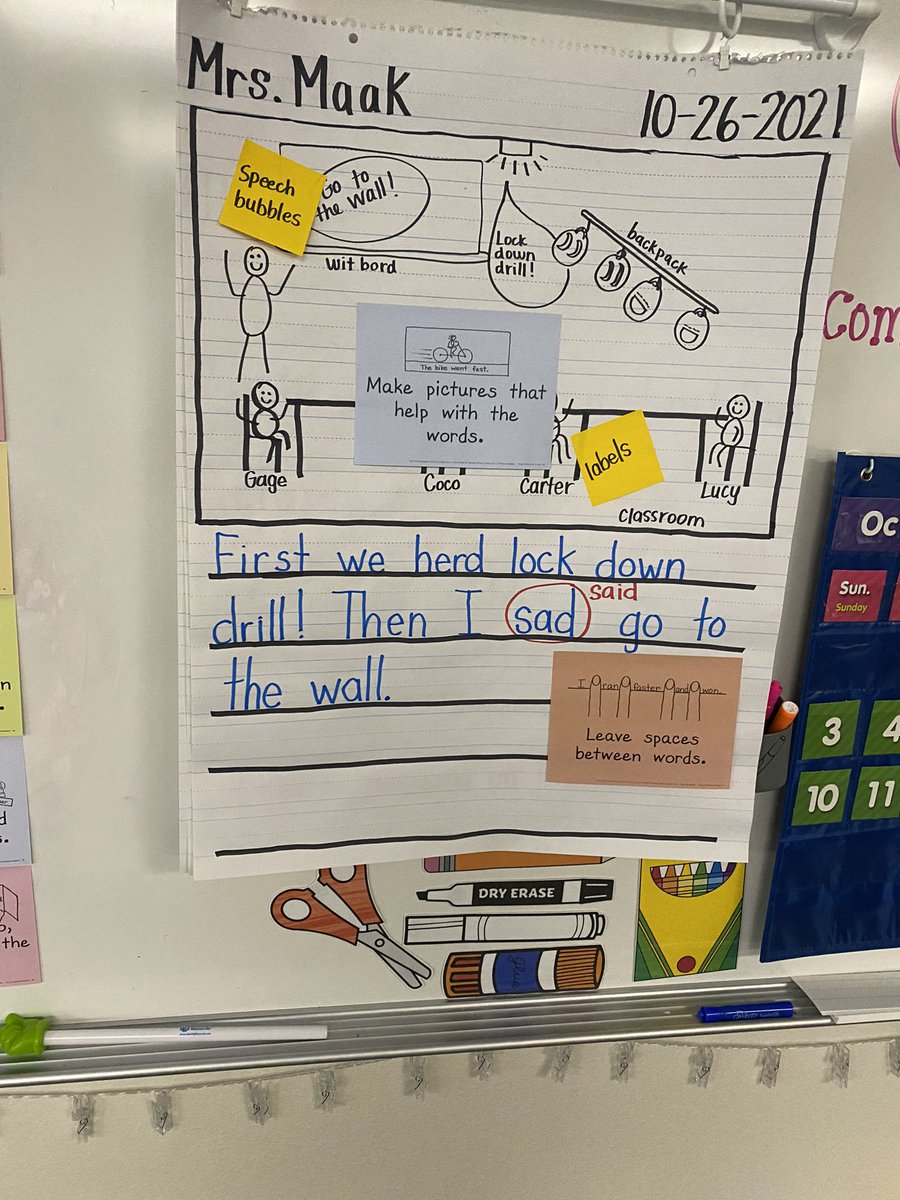 Mrs. Maak
10-26-2021
Speech
bubbles
Go to
the wall!
Wit bord
Lock
down
drill!
backpack
The bike went fast.
Make pictures that
help with the
words.
labels
Gage
Coco
Carter
Lucy
classroom
First we herd lock down
drill! Then I sad said go to
the wall.
I ran faster and won.
Leave spaces
between words.
Com
Oc
Sun.
Sunday
3
4
10
11
the
DRY ERASE
glue